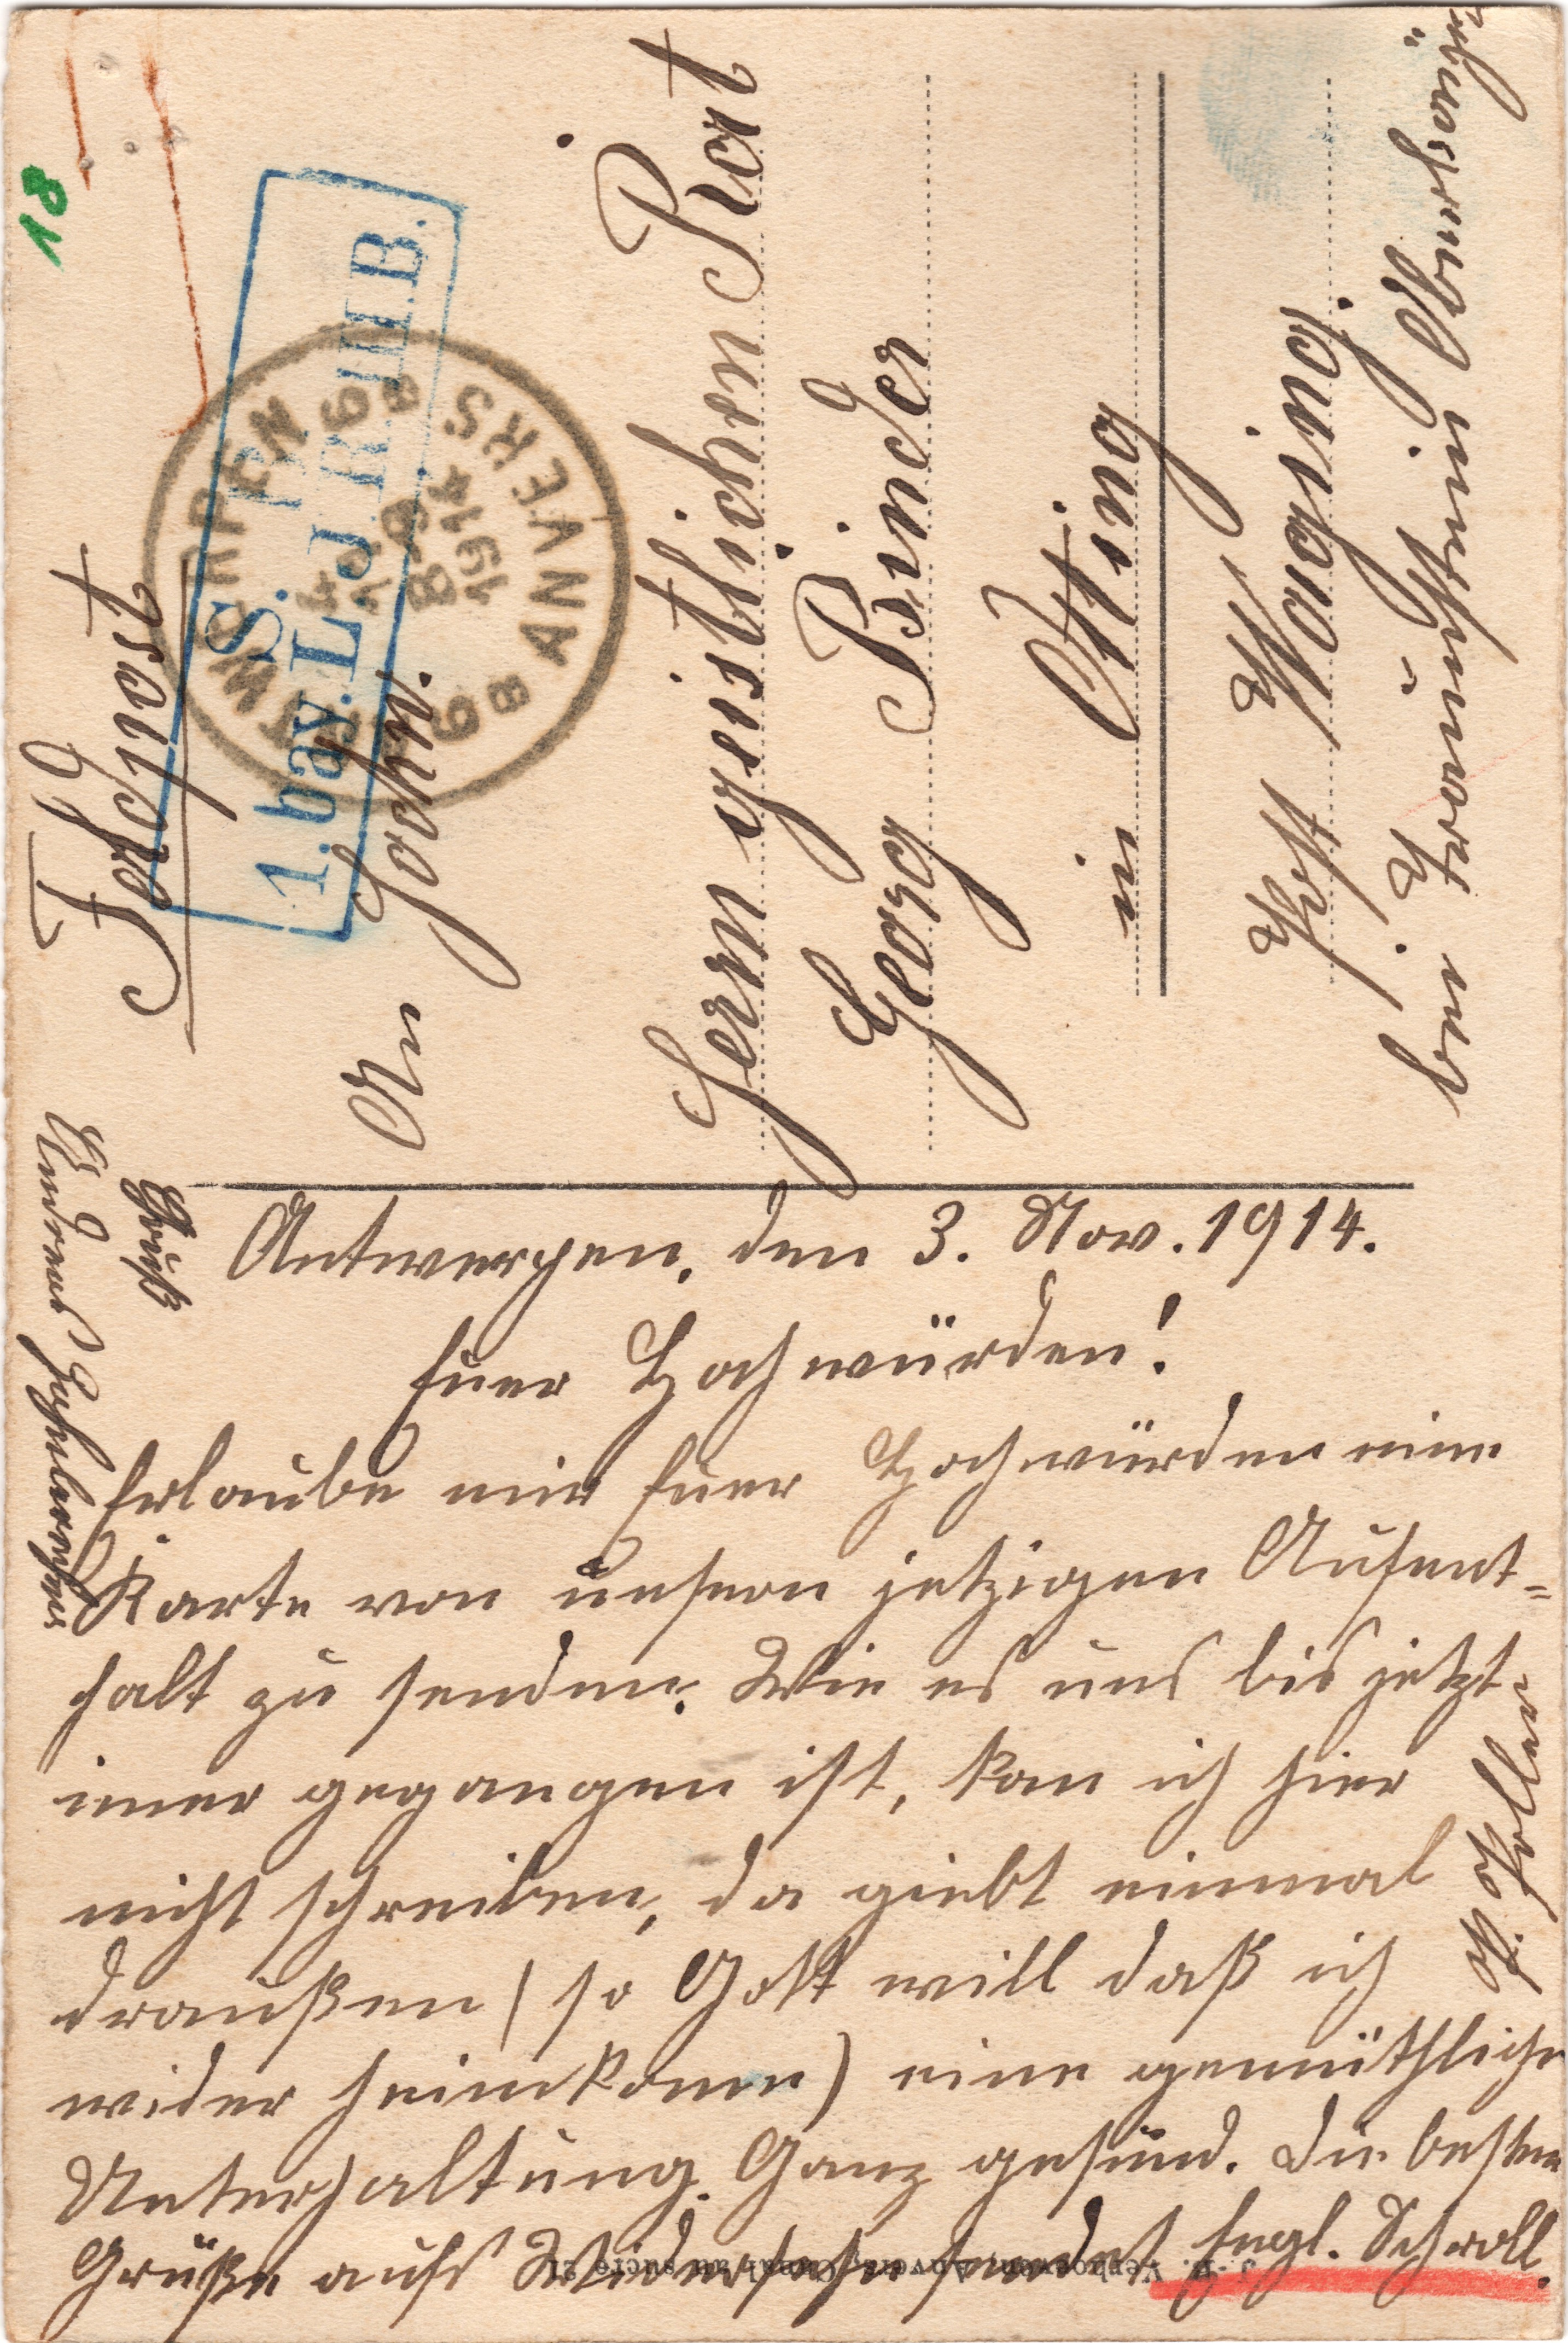 18
Feldpost
S. B.
1. bay. L. J. R. III. B.
ANTWERPEN 6
ANVERS 6
1914
An Hochw.
Herrn geistlichen Rat
Georg Binder
in Otting
Post Woching
Antwerpen, den 3. Nov. 1914.
Euer Hochwürden!
Erlaube mir Euer Hochwürden eine
Karte von unsern jetzigen Aufent=
halt zu senden. Wie es uns bis jetzt
imer gegangen ist, kan ich hier
nicht schreiben, da giebt einmal
draußen (so Gott will daß ich
wider heimkome) eine gemüthliche
Unterhaltung. Ganz gesund. Die besten
Grüße aufs Widersehn sendet Engl. Schroll.
Gruß
Andreas
J. B. Verhoeven, Anvers, Canal au sucre 21